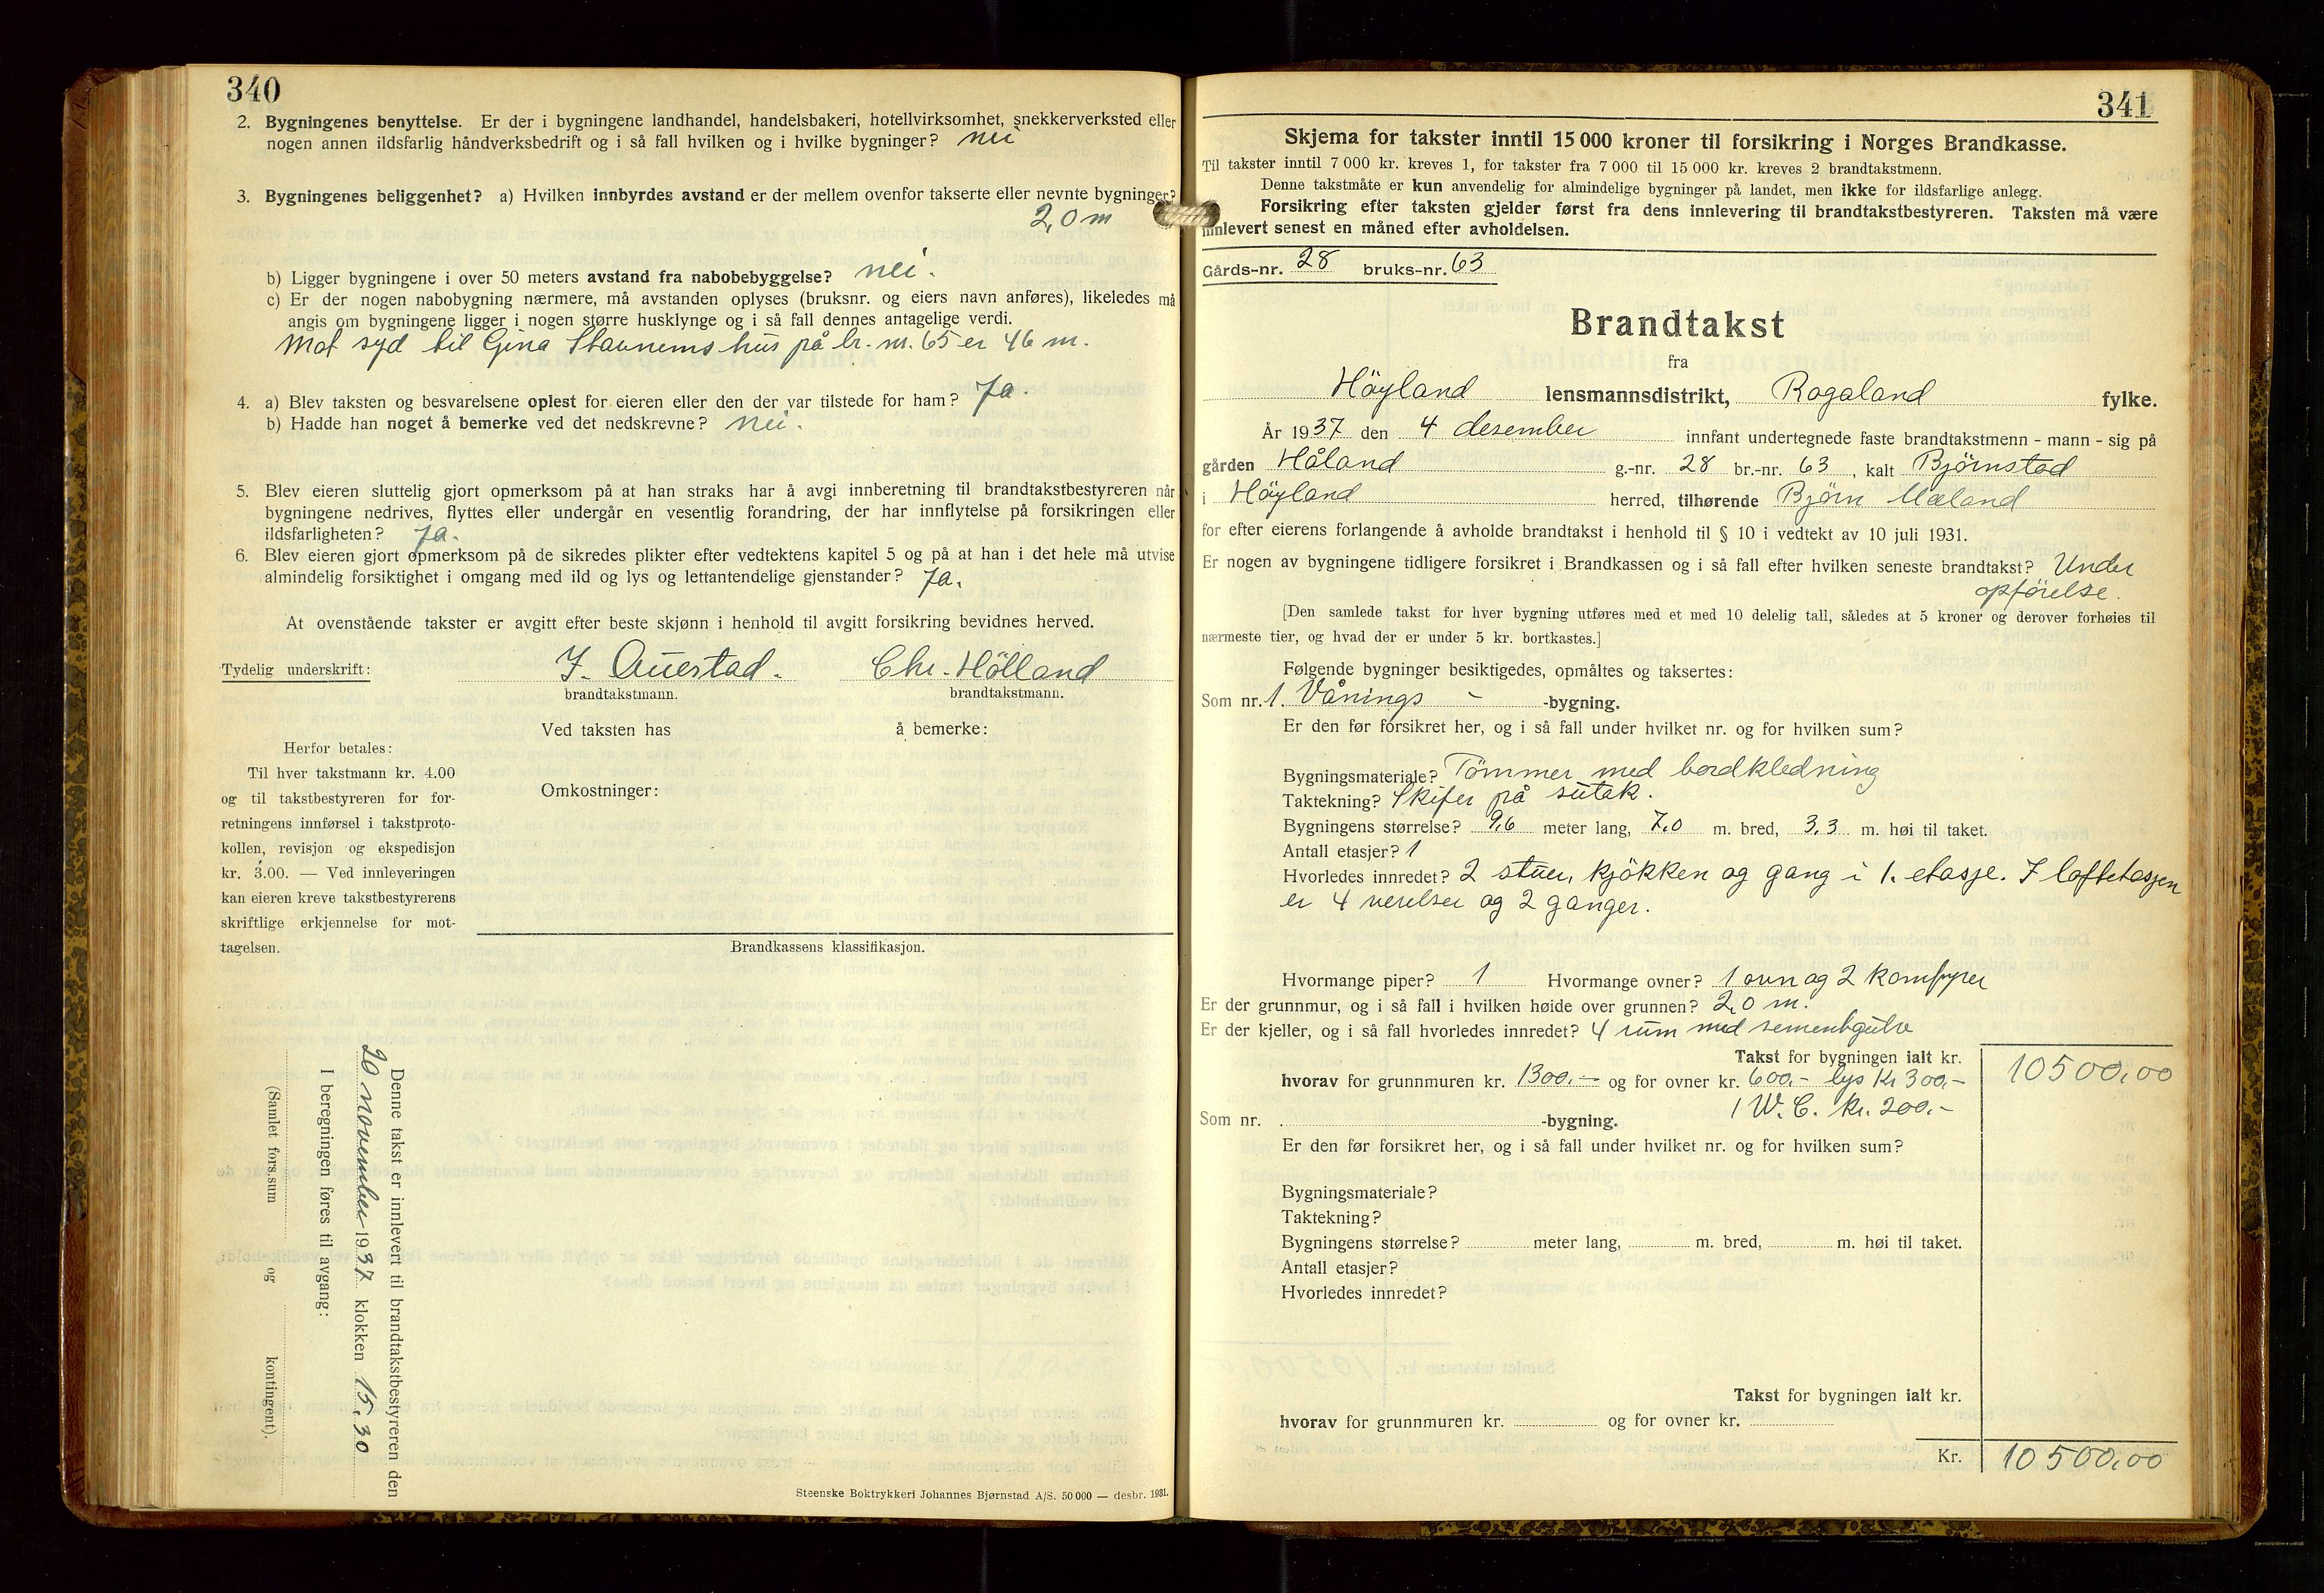 340
2. Bygningenes benyttelse. Er der i bygningene landhandel, handelsbakeri, hotellvirksomhet, snekkerverksted eller
nogen annen ildsfarlig håndverksbedrift og i så fall hvilken og i hvilke bygninger? nei
3. Bygningenes beliggenhet? a) Hvilken innbyrdes avstand er der mellem ovenfor takserte eller nevnte bygninger?
2,0 m
b) Ligger bygningene i over 50 meters avstand fra nabobebyggelse? nei.
c) Er der nogen nabobygning nærmere, må avstanden oplyses (bruksnr. og eiers navn anføres), likeledes må
angis om bygningene ligger i nogen større husklynge og i så fall dennes antagelige verdi.
Mot syd til Gina Staunems hus på br. nr. 65 er 46 m.
4. a) Blev taksten og besvarelsene oplest for eieren eller den der var tilstede for ham? Ja.
b) Hadde han noget å bemerke ved det nedskrevne? nei.
5. Blev eieren sluttelig gjort opmerksom på at han straks har å avgi innberetning til brandtakstbestyreren når
bygningene nedrives, flyttes eller undergår en vesentlig forandring, der har innflytelse på forsikringen eller
ildsfarligheten? Ja.
6. Blev eieren gjort opmerksom på de sikredes plikter efter vedtektens kapitel 5 og på at han i det hele må utvise
almindelig forsiktighet i omgang med ild og lys og lettantendelige gjenstander? Ja.
At ovenstående takster er avgitt efter beste skjønn i henhold til avgitt forsikring bevidnes herved.
Tydelig underskrift: J. Auestad. Chr. Hölland
brandtakstmann. brandtakstmann.
Ved taksten has å bemerke:
Herfor betales:
Til hver takstmann kr. 4.00
og til takstbestyreren for for-
retningens innførsel i takstproto-
kollen, revisjon og ekspedisjon
kr. 3.00. — Ved innleveringen
kan eieren kreve takstbestyrerens
skriftlige erkjennelse for mot-
tagelsen.
Omkostninger:
Brandkassens klassifikasjon.
Denne takst er innlevert til brandtakstbestyreren den
20 november 1937 klokken 15,30
I beregningen føres til avgang:
(Samlet fors.sum og kontingent).
Steenske Boktrykkeri Johannes Bjørnstad A/S. 50 000 — desbr. 1931.
341
Skjema for takster inntil 15 000 kroner til forsikring i Norges Brandkasse.
Til takster inntil 7 000 kr. kreves 1, for takster fra 7 000 til 15 000 kr. kreves 2 brandtakstmenn.
Denne takstmåte er kun anvendelig for almindelige bygninger på landet, men ikke for ildsfarlige anlegg.
Forsikring efter taksten gjelder først fra dens innlevering til brandtakstbestyreren. Taksten må være
innlevert senest en måned efter avholdelsen.
Gårds-nr. 28 bruks-nr. 63
Brandtakst
fra
Höyland lensmannsdistrikt, Rogaland fylke.
År 1937 den 4 desember innfant undertegnede faste brandtakstmenn - mann - sig på
gården Håland g.-nr. 28 br.-nr. 63, kalt Björnstad
i Höyland herred, tilhørende Björn Mæland
for efter eierens forlangende å avholde brandtakst i henhold til § 10 i vedtekt av 10 juli 1931.
Er nogen av bygningene tidligere forsikret i Brandkassen og i så fall efter hvilken seneste brandtakst? Under
opförelse.
[Den samlede takst for hver bygning utføres med et med 10 delelig tall, således at 5 kroner og derover forhøies til
nærmeste tier, og hvad der er under 5 kr. bortkastes.]
Følgende bygninger besiktigedes, opmåltes og taksertes:
Som nr. 1. Vånings - -bygning.
Er den før forsikret her, og i så fall under hvilket nr. og for hvilken sum?
Bygningsmateriale? Tömmer med bordkledning
Taktekning? Skifer på sutak.
Bygningens størrelse? 9,6 meter lang, 7,0 m. bred, 3,3 m. høi til taket.
Antall etasjer? 1
Hvorledes innredet? 2 stuer, kjökken og gang i 1. etasje. I loftetasjen
er 4 verelser og 2 ganger.
Hvormange piper? 1 Hvormange ovner? 1 ovn og 2 komfyrer
Er der grunnmur, og i så fall i hvilken høide over grunnen? 2,0 m.
Er der kjeller, og i så fall hvorledes innredet? 4 rum med sementgulv
Takst for bygningen ialt kr. 10500,00
hvorav for grunnmuren kr. 1300.- og for ovner kr. 600,- lys kr 300,-
1 W.C. kr. 200.-
Som nr. -bygning.
Er den før forsikret her, og i så fall under hvilket nr. og for hvilken sum?
Bygningsmateriale?
Taktekning?
Bygningens størrelse? meter lang, m. bred, m. høi til taket.
Antall etasjer?
Hvorledes innredet?
Takst for bygningen ialt kr.
hvorav for grunnmuren kr. og for ovner kr.
Kr. 10500,00